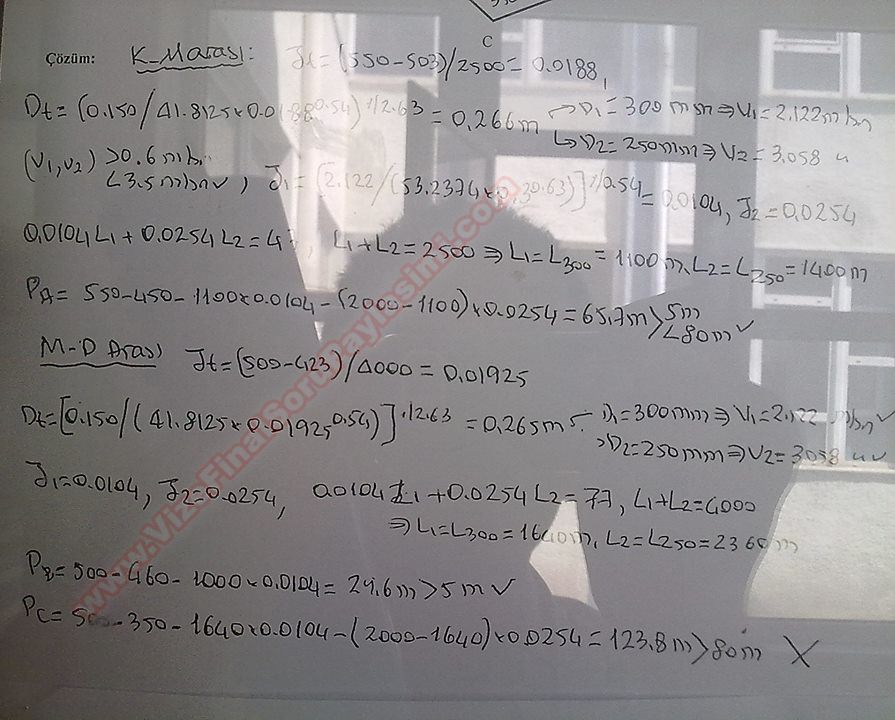 C
Çözüm: K-M arası: Jt = (550-503)/2500 = 0.0188,
Dt = (0.150/41.8125×0.0188^0.54)^1/2.63 = 0,266m → D1 = 300mm ⇒ V1 = 2.122m/sn
↳ D2 = 250mm ⇒ V2 = 3.058 "
(V1,V2) >0.6 m/sn
<3.5m/sn ✓, J1 = [2.122/(53.2374×0,3^0.63)]^1/0.54 = 0,0104, J2 = 0,0254
0,0104L1 + 0.0254L2 = 47, L1+L2 = 2500 ⇒ L1 = L300 = 1100m, L2 = L250 = 1400m
PA = 550-450-1100×0.0104-(2000-1100)×0.0254 = 65,7m >5m
<80m ✓
M-D Arası Jt = (500-423)/4000 = 0.01925
Dt = [0.150/(41.8125×0.01925^0.54)]^1/2.63 = 0,265m → D1 = 300mm ⇒ V1 = 2.122 m/sn ✓
→ D2 = 250mm ⇒ V2 = 3058 " ✓
J1 = 0.0104, J2 = 0.0254, 0.0104L1 + 0.0254L2 = 77, L1+L2 = 4000
⇒ L1 = L300 = 1640m, L2 = L250 = 2360m
PB = 500-460-1000×0.0104 = 29,6m > 5m ✓
PC = 500-350-1640×0.0104-(2000-1640)×0.0254 = 123.8m > 80m X
www.VizeFinalSoruPaylasimi.com